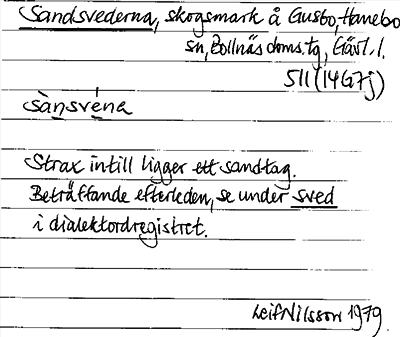 Sandsvederna, skogsmark å Gusbo, Hanebo
sn, Bollnäs doms. tg, Gävl. l.
511 (14G7j)
sàn̲svén̲a
Strax intill ligger ett sandtag.
Beträffande efterleden, se under sved
i dialektordregistret.
Leif Nilsson 1979.